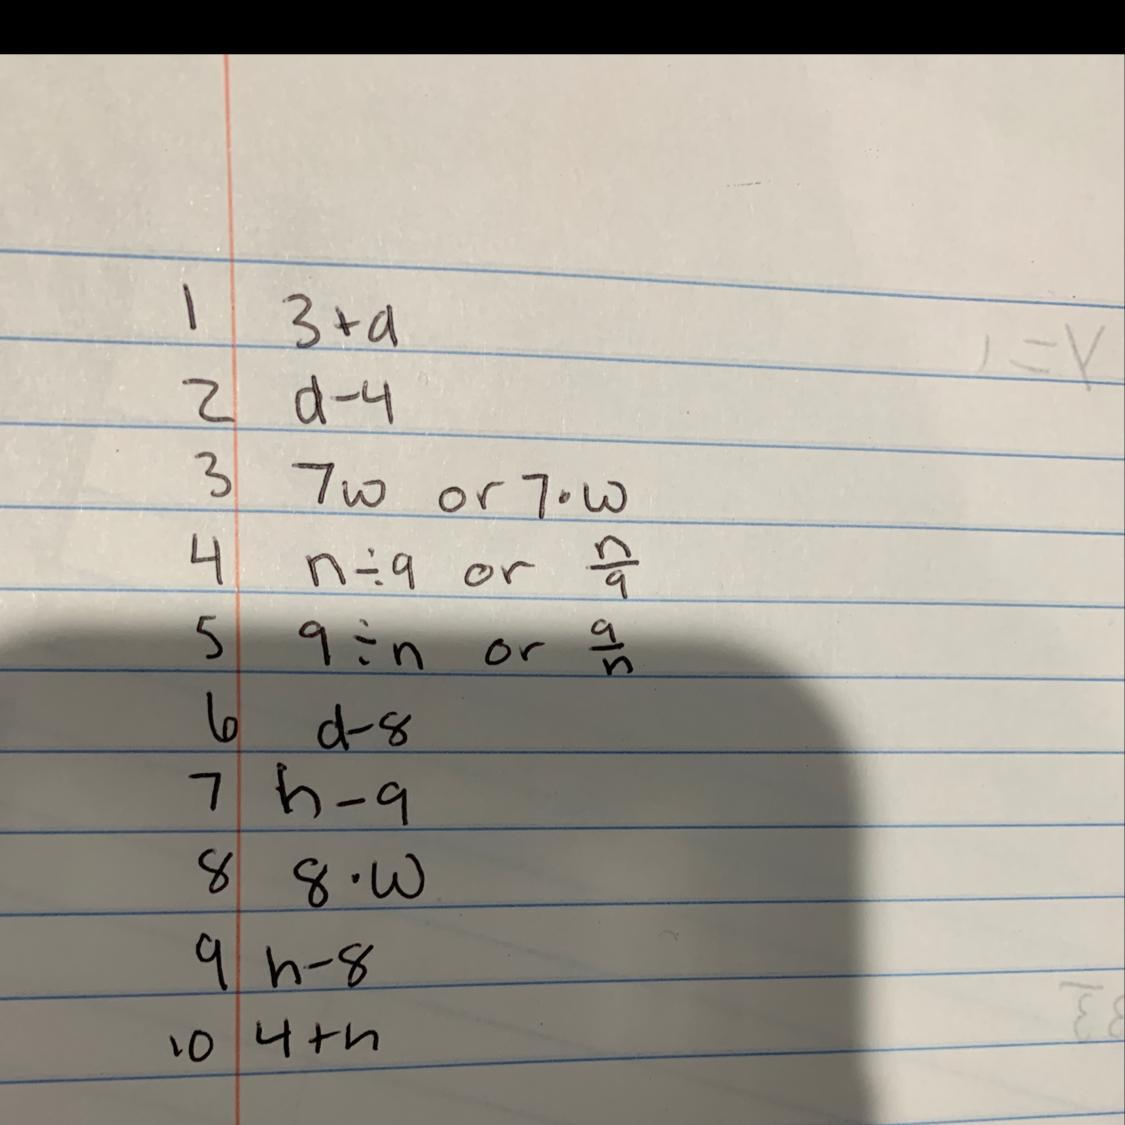 1 3+a
2 d-4
3 7w or 7·w
4 n÷9 or n/9
5 9÷n or 9/n
6 d-8
7 h-9
8 8·w
9 h-8
10 4+n